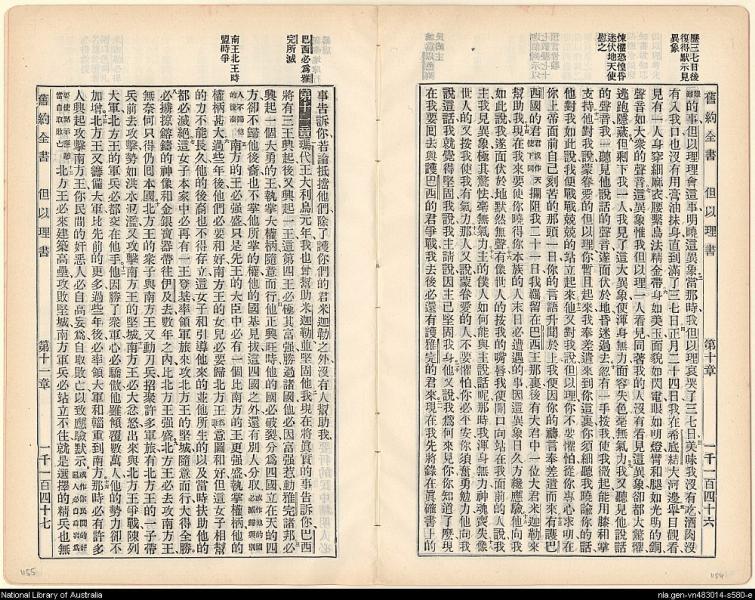 歷三七日後
復得默示見
異象
悚懼恐惶昏
迷伏地天使
慰之
舊約全書 但以理書 第十章 一千一百四十六
的事但以理理會這事明曉這異象當那時我但以理哀哭了三七日美味我沒有吃酒肉沒
有入我口也沒有用膏油抹身直到滿了三七日正月二十四日我在希底結大河邊舉目觀看
見有一人身穿細麻衣腰繫烏法精金帶身如美玉面貌如閃電眼如明燈臂和腿如光明的銅
聲音如大衆的聲音這異象惟我但以理一人看見同著我的人沒有看見這異象卻都大驚懼
逃跑隱藏但剩下我一人我見了這大異象便渾身無力面容失色毫無氣力我又聽見他說話
的聲音我一聽見他說話的聲音遂面伏於地昏迷過去忽有一手按我使我微起能用膝和掌
支持他對我說蒙眷愛的但以理你暫且起來我奉差遣來到你這裏你須細聽我曉諭你的話
他對我如此說我便戰戰兢兢的站立起來他又對我說但以理你不要懼怕從你專心求明在
你上帝面前自己刻苦的那頭一日你的言語升聞於上我便因你的禱言奉差遣而來有護巴
西國的君攔阻我二十一日我羈留在巴西王那裏後有大君中一位大君米迦勒來
幫助我我現在來要使你曉得你本族的人末日必遭遇的事因這異象日久方纔應驗他向我
如此說我遂面伏於地默然無聲有像世人的按我的嘴唇我便開口向站在我面前的人說我
主我見異象極其驚怯毫無氣力我主的僕人如何能與主說話呢那時我渾身無力神魂喪失像
世人的又按我使我有氣力那人又說蒙眷愛的人不要懼怕你必平安你須奮勇勉力他向我
說這話我就覺得堅固我說我主請說因主已堅固我身他又說我爲何來見你你知道了麼現
在我要回去與護巴西的君爭戰我去後必還有護雅完的君來現在我先將錄在眞確書上的
巴西必爲雅
完所滅
南王北王時
盟時爭
舊約全書 但以理書 第十一章 一千一百四十七
事告訴你若論抵擋他們除了護你們的君米迦勒之外沒有人幫助我
第十一章 瑪代王大利烏元年我也曾幫助米迦勒並堅固他我現在將眞實的事告訴你巴西
將有三王興起後又興起一王這第四王必極其富強勝過諸國他必因富強惹動雅完諸邦必
興起一個大勇的王執掌大權柄隨意而行他正興旺時他的國必破裂分爲四國立在天的四
方卻不歸他後裔也不掌他所掌的權他的國基見拔這四國之外還有別人分取
南方的王必強盛只是先王的大臣中必有一個比南方的王更強盛執掌權柄他的
權柄甚大過些年後他們必要和好南方王的女兒必要歸北方王意圖和好但這女子相幫
的力不能長久他的後裔也不得存立這女子和引導他來的並他所生的以及當時扶助他的
都必滅絕這女子本家中必再有一王登基率領軍旅來攻北方王的堅城隨意而行大得全勝
必擄掠鎔鑄的神像和金銀寶器帶往伊及去數年之內比北方王強盛北方王必去攻南方王
無奈何只得仍回本國北方王的衆子與南方王又動刀兵招聚許多軍旅有北方王的一子帶
兵前去攻擊勢如洪水氾濫又攻擊南方王的堅城南方王必大忿怒出來與北方王爭戰陳列
大軍北方王的軍兵必都交在他手他因勝了衆軍心必驕傲他雖傾覆數萬人他的勢力卻不
加增北方王又籌備大軍比先前的更多過些年後必率領大軍和輜重到南方那時必有許多
人興起攻擊南方王你民間的奸惡人必自高妄爲自取敗亡以致應驗默示
北方王必來建築高壘攻取堅城南方軍兵必站立不住就是選擇的精兵也無
1155
1154
National Library of Australia
nla.gen-vn483014-s580-e